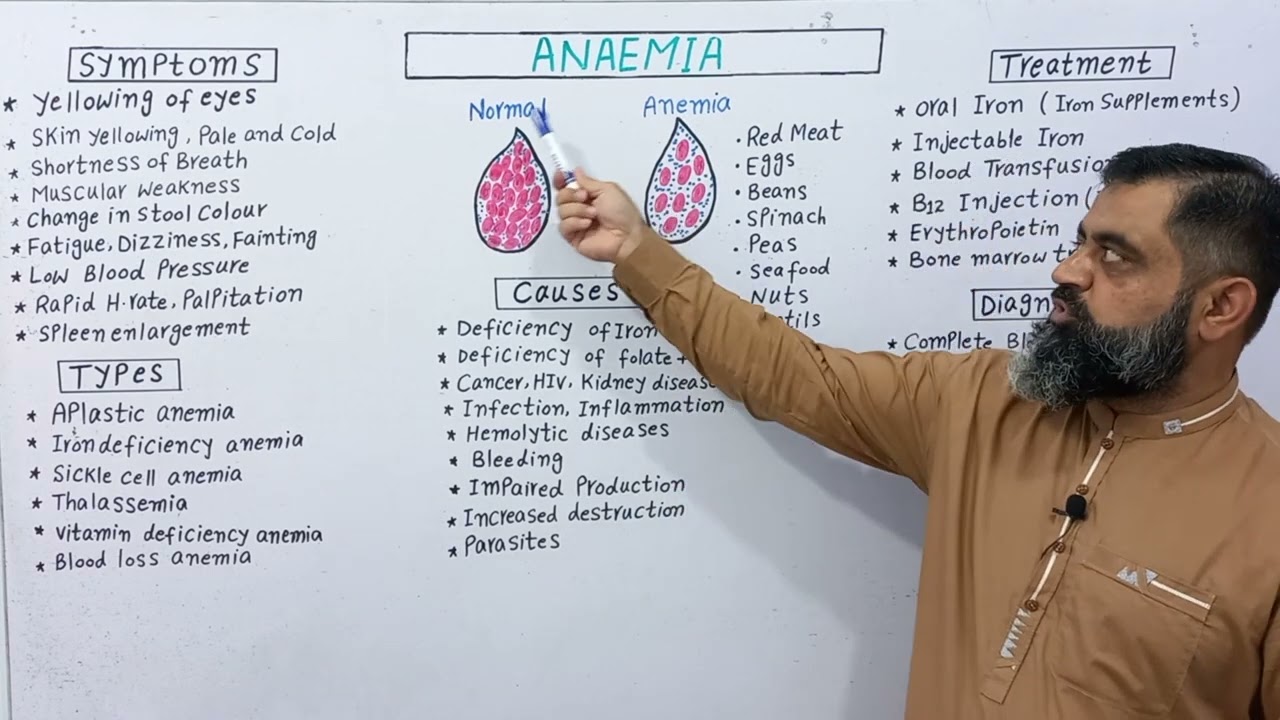 ANAEMIA
Symptoms
* Yellowing of eyes
* Skin yellowing, Pale and Cold
* Shortness of Breath
* Muscular weakness
* Change in Stool Colour
* Fatigue, Dizziness, Fainting
* Low Blood Pressure
* Rapid H.rate, Palpitation
* Spleen enlargement
Types
* Aplastic anemia
* Iron deficiency anemia
* Sickle cell anemia
* Thalassemia
* Vitamin deficiency anemia
* Blood loss anemia
Normal
Anemia
. Red Meat
. Eggs
. Beans
. Spinach
. Peas
. Seafood
Nuts
Causes
* Deficiency of Iron
* Deficiency of folate +
* Cancer, HIV, Kidney disease
* Infection, Inflammation
* Hemolytic diseases
* Bleeding
* Impaired Production
* Increased destruction
* Parasites
Treatment
* Oral Iron (Iron Supplements)
* Injectable Iron
* Blood
* B12 Injection (
* Erythropoietin
* Bone marrow
* Complete